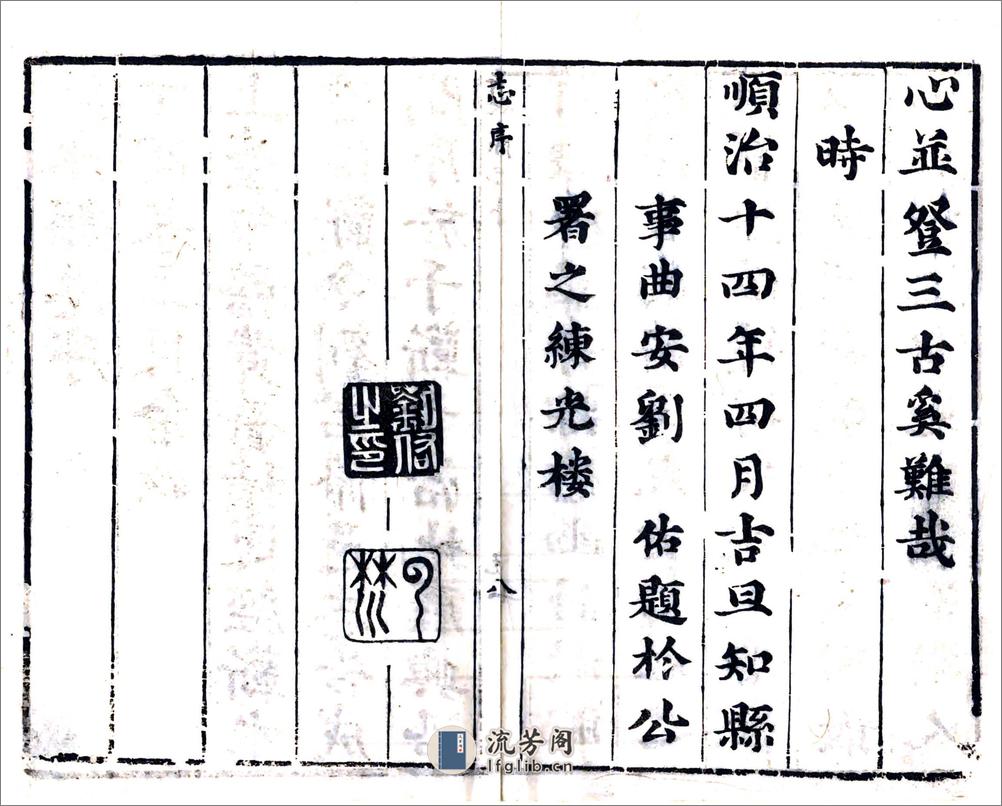 心並登三古奚難哉
時
順治十四年四月吉旦知縣
事曲安劉　佑題於公
署之練光樓
志序
八
劉佑之印
流芳阁
lfglib.cn